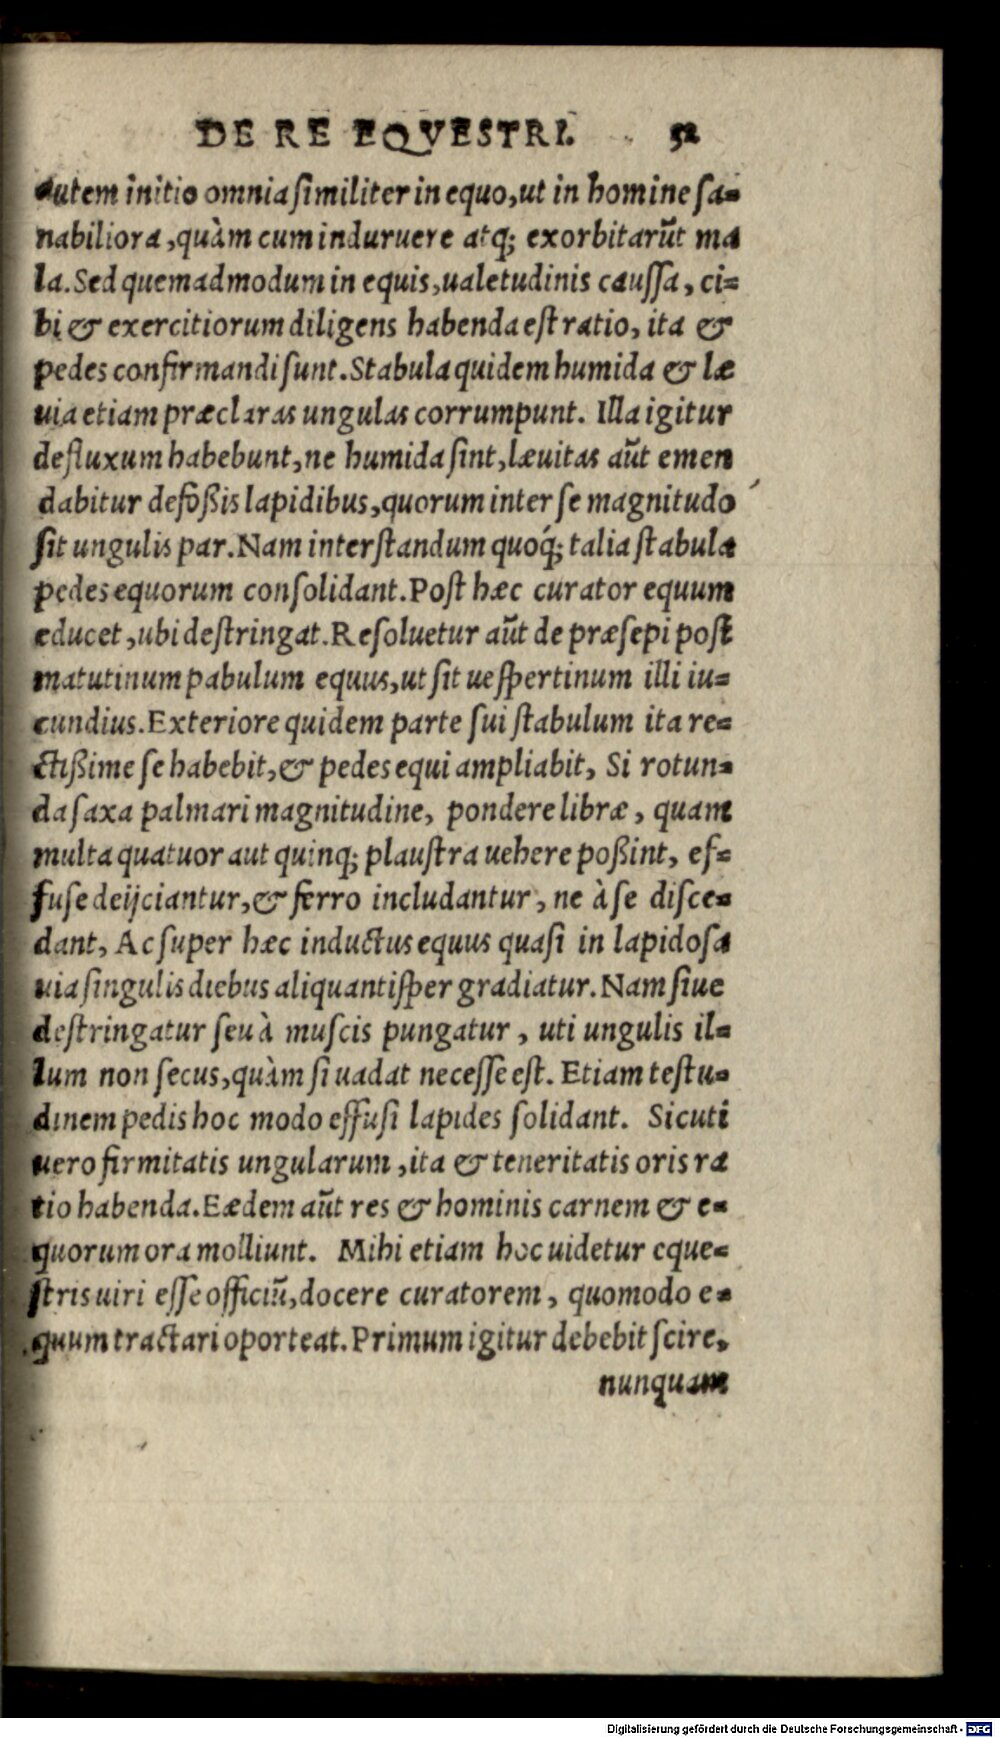 DE RE EQVESTRI. 52
autem initio omnia similiter in equo, ut in homine sa-
nabiliora, quàm cum induruere atq; exorbitarũt ma
la. Sed quemadmodum in equis, ualetudinis caussa, ci-
bi & exercitiorum diligens habenda est ratio, ita &
pedes confirmandi sunt. Stabula quidem humida & læ
uia etiam præclaras ungulas corrumpunt. Illa igitur
defluxum habebunt, ne humida sint, læuitas aũt emen
dabitur defoßis lapidibus, quorum inter se magnitudo
sit ungulis par. Nam interstandum quoq́; talia stabula
pedes equorum consolidant. Post hæc curator equum
educet, ubi destringat. Resoluetur aũt de præsepi post
matutinum pabulum equus, ut sit uespertinum illi iu-
cundius. Exteriore quidem parte sui stabulum ita re-
ctißime se habebit, & pedes equi ampliabit, Si rotun-
da saxa palmari magnitudine, pondere libræ, quam
multa quatuor aut quinq; plaustra uehere poßint, ef-
fuse deijciantur, & ferro includantur, ne à se disce-
dant, Ac super hæc inductus equus quasi in lapidosa
uia singulis diebus aliquantisper gradiatur. Nam siue
destringatur seu à muscis pungatur, uti ungulis il-
lum non secus, quàm si uadat necesse est. Etiam testu-
dinem pedis hoc modo effusi lapides solidant. Sicuti
uero firmitatis ungularum, ita & teneritatis oris ra
tio habenda. Eædem aũt res & hominis carnem & e-
quorum ora molliunt. Mihi etiam hoc uidetur eque-
stris uiri esse officiũ, docere curatorem, quomodo e-
quum tractari oporteat. Primum igitur debebit scire,
nunquam
Digitalisierung gefördert durch die Deutsche Forschungsgemeinschaft - DFG